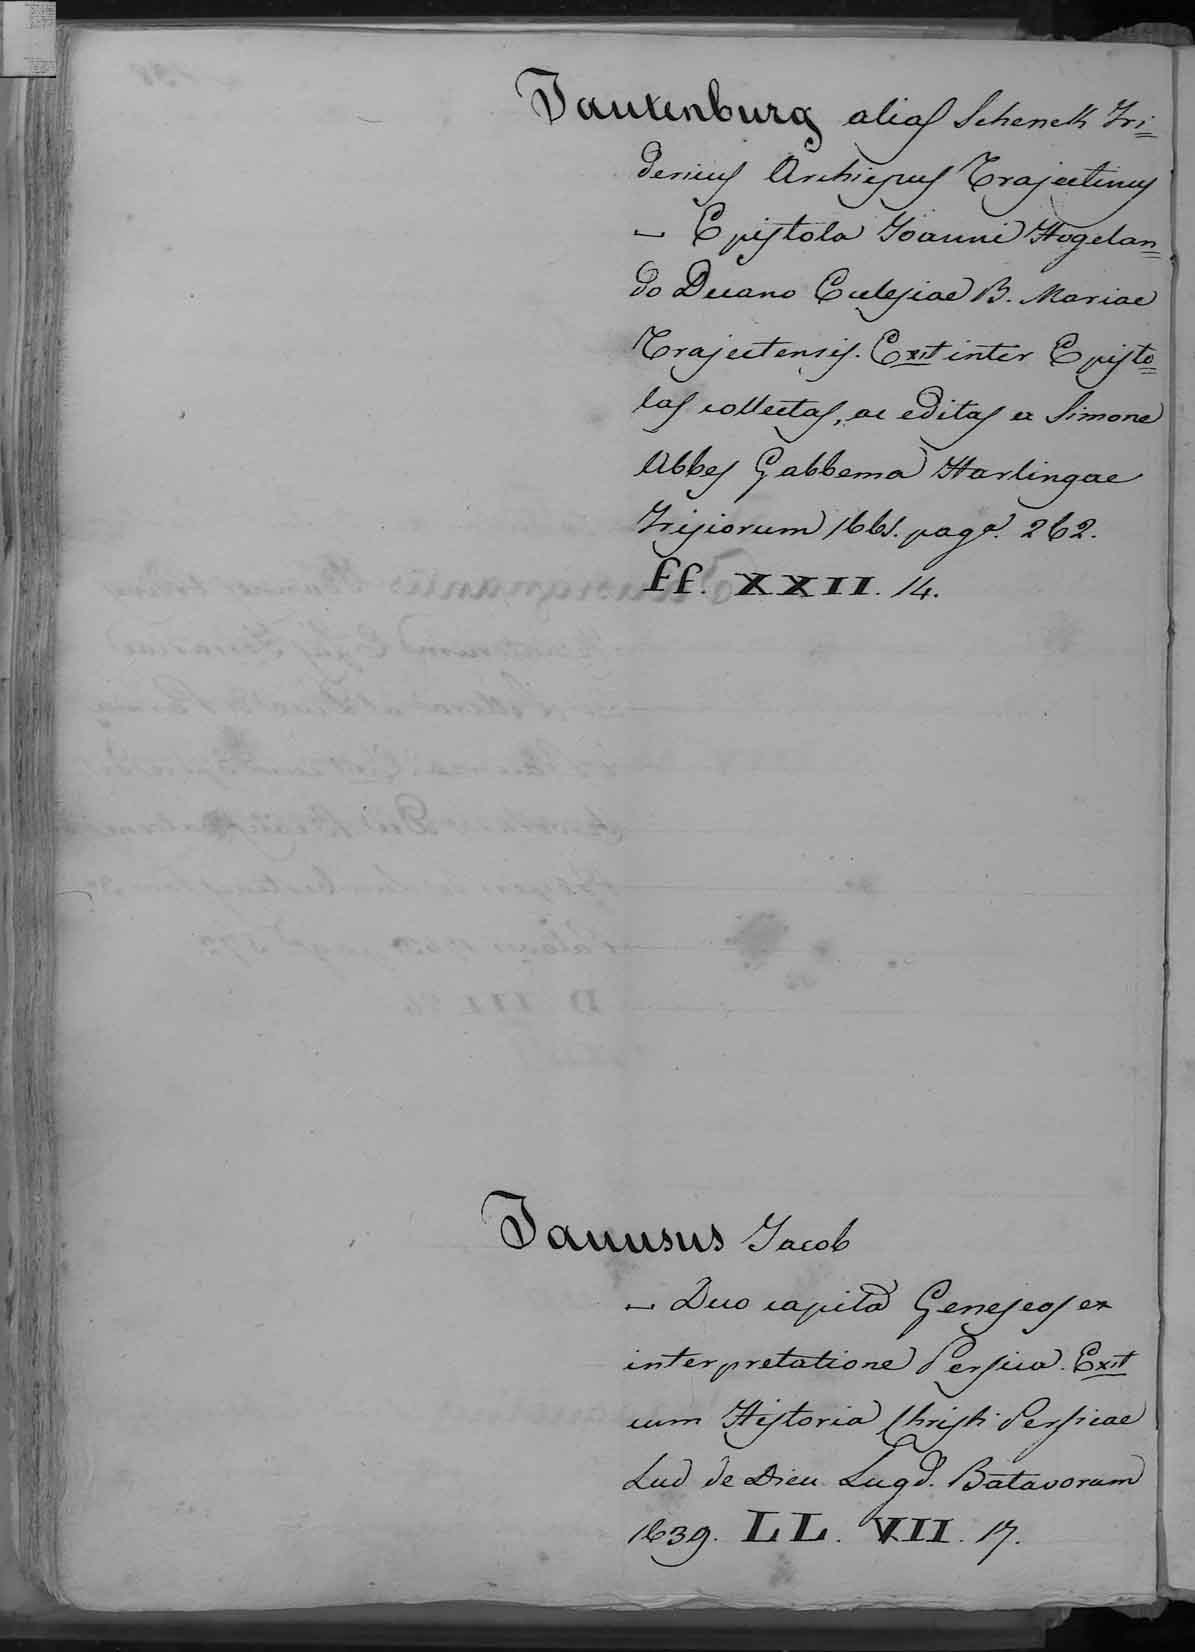 Tautenburg alias Schenck Fri=
dericus Archiepus Trajectinus
— Epistola Joanni Hogelan=
do Decano Eclesiae B. Mariae
Trajectensis. Exit inter Episto=
las collectas, ac editas a Simone
Abbes Gabbema Harlingae
Frisiorum 1661. paga. 262.
ff. XXII. 14.
Tauusus Jacob
— Duo capita Geneseos ex
interpretatione Persica. Exit
cum Historia Christi Persicae
Lud de Dieu Lugd. Batavorum
1639. LL. VII. 17.